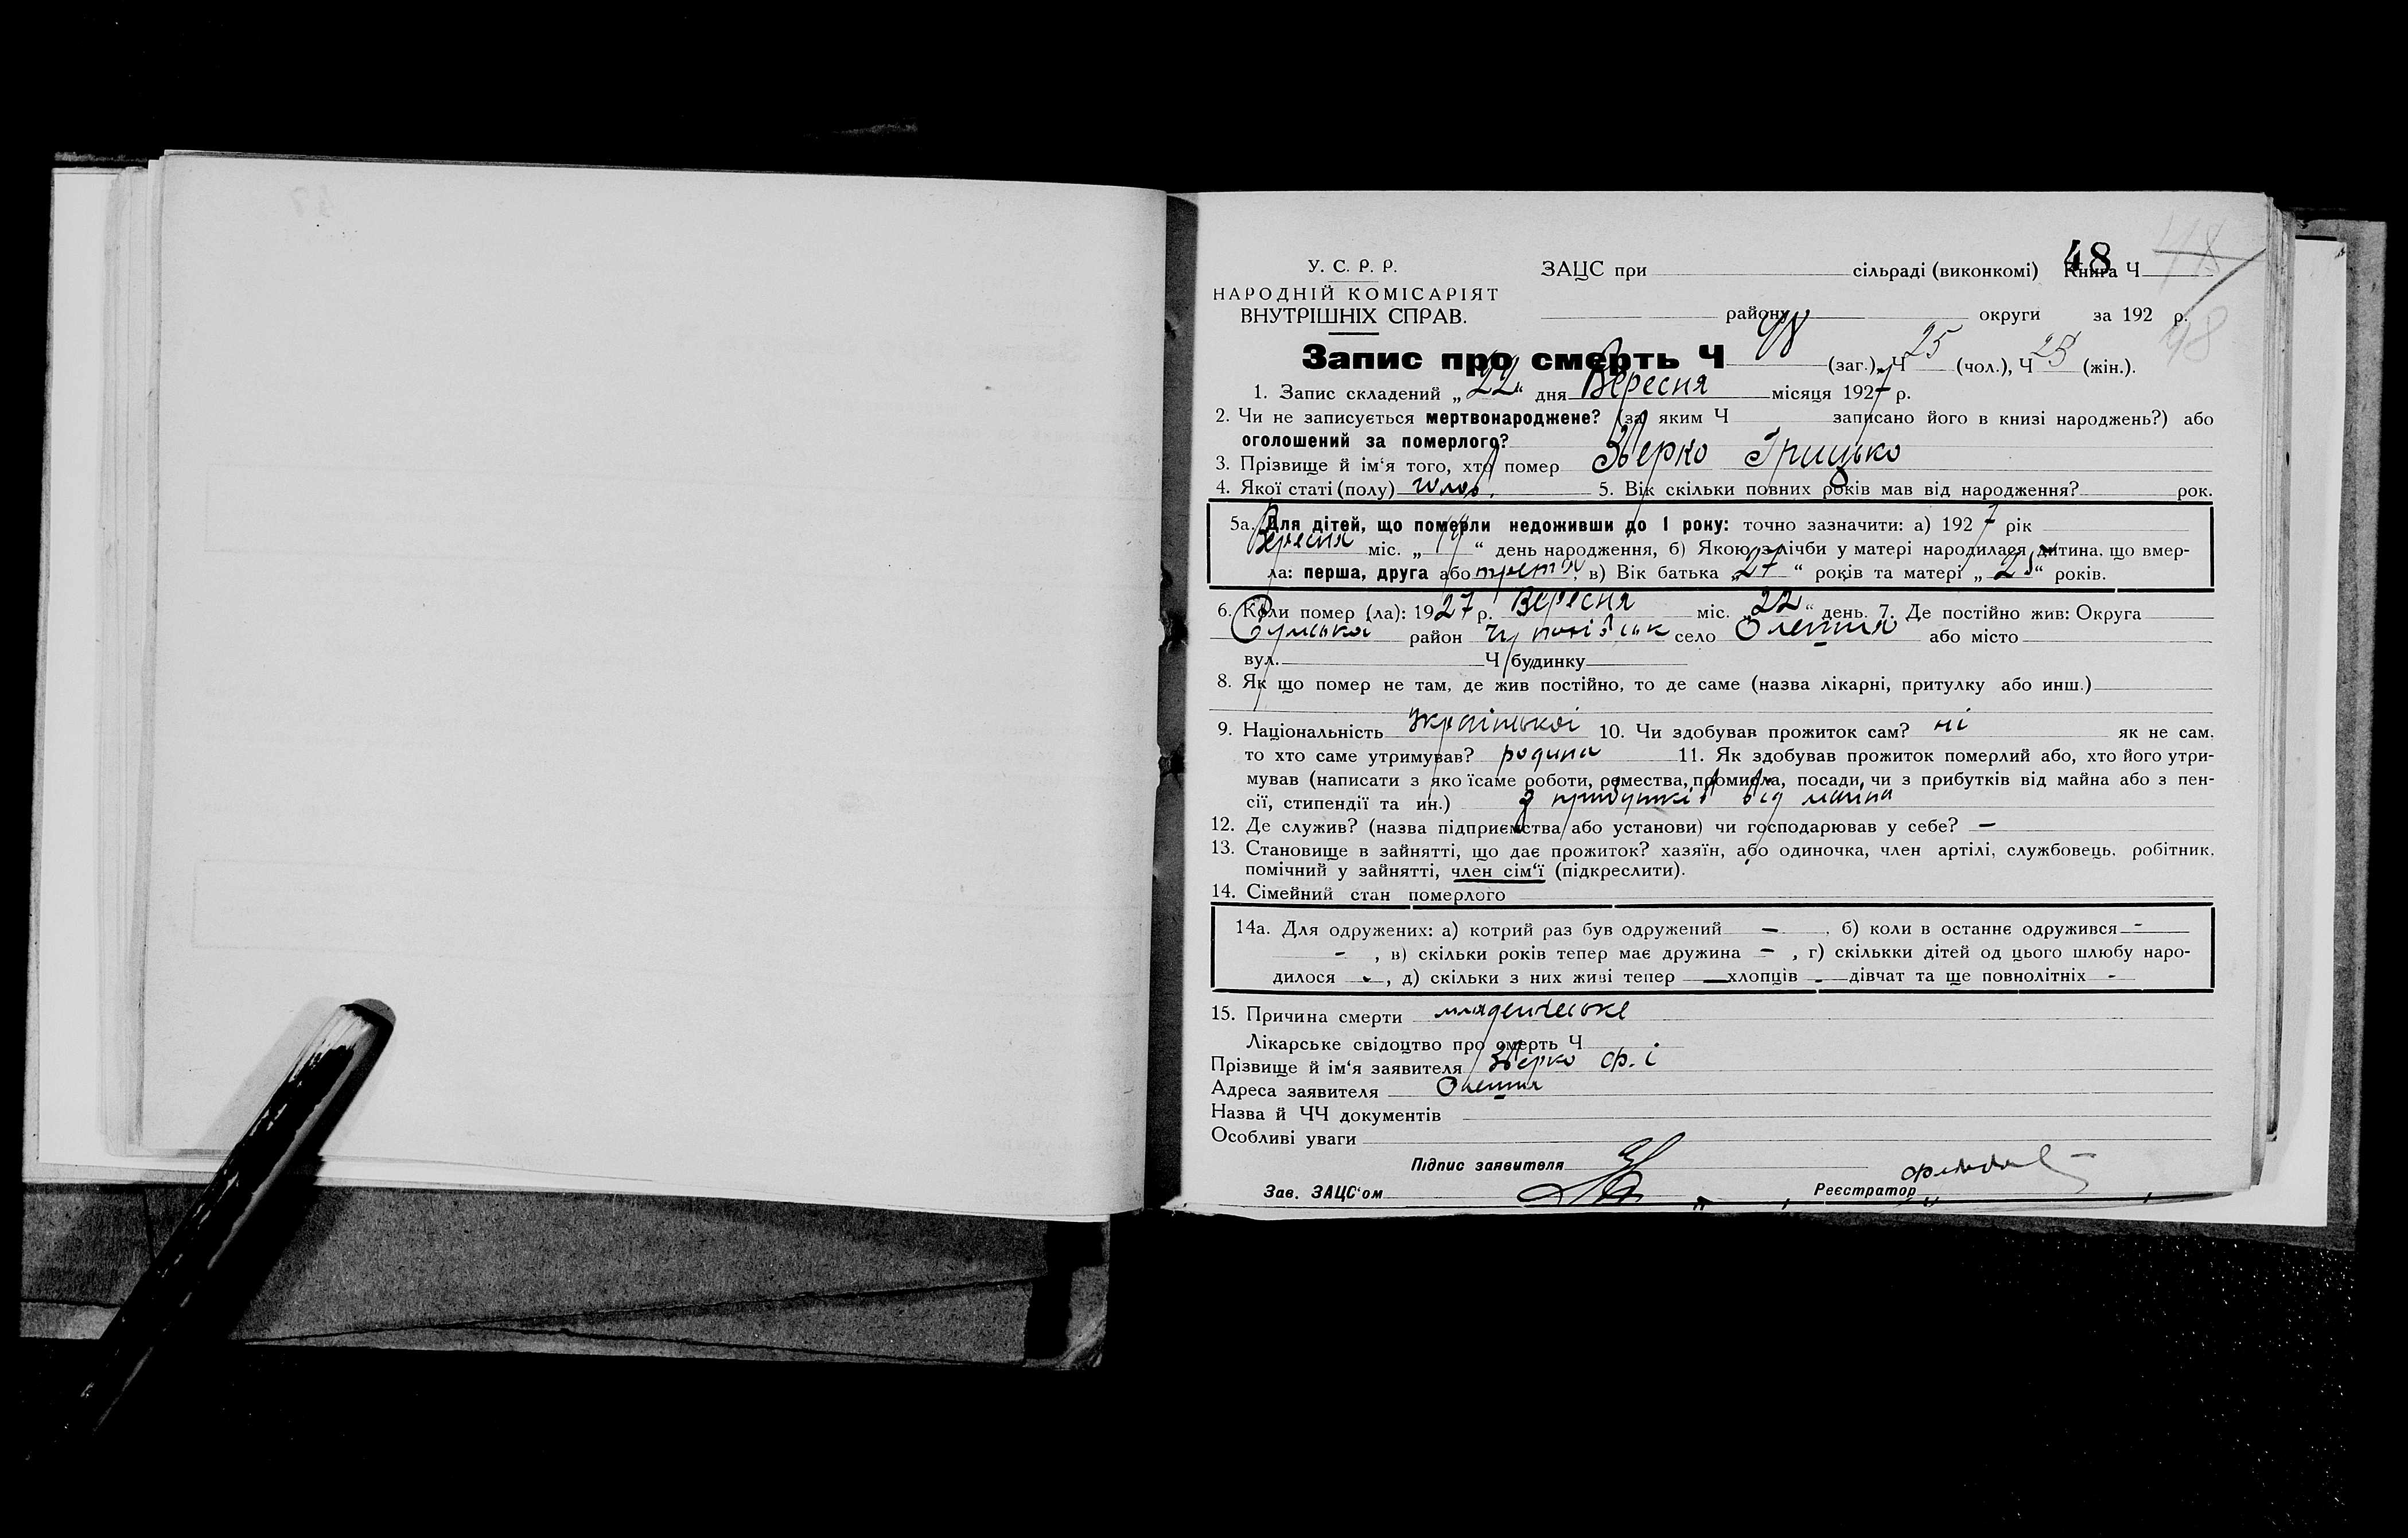 48
У. С. Р. Р. ЗАЦС при сільраді (виконкомі) Книга Ч 48
НАРОДНІЙ КОМІСАРІЯТ
ВНУТРІШНІХ СПРАВ. району округи за 192 р.
48
Запис про смерть Ч 48 (заг.), Ч 25 (чол.), Ч 23 (жін.).
1. Запис складений „ 22 “ дня Вересня місяця 1927 р.
2. Чи не записується мертвонароджене? (за яким Ч записано його в книзі народжень?) або
оголошений за померлого?
3. Прізвище й ім‘я того, хто помер Зверко Грицько
4. Якої статі (полу) чолов. 5. Вік скільки повних років мав від народження? рок.
5а. Для дітей, що померли недоживши до 1 року: точно зазначити: а) 1927 рік
Вересня міс. „ “ день народження, б) Якою з лічби у матері народилася дитина, що вмер-
ла: перша, друга або третя, в) Вік батька „ 27 “ років та матері „ 25 “ років.
6. Коли помер (ла): 1927 р. Вересня міс. „ 22 “ день. 7. Де постійно жив: Округа
Сумська район село або місто
вул. Ч будинку
8. Як що помер не там, де жив постійно, то де саме (назва лікарні, притулку або инш.)
9. Національність Української 10. Чи здобував прожиток сам? ні як не сам,
то хто саме утримував? родина 11. Як здобував прожиток померлий або, хто його утри-
мував (написати з яко їсаме роботи, ремества, промисла, посади, чи з прибутків від майна або з пен-
сії, стипендії та ин.) з прибутків від майна
12. Де служив? (назва підприємства або установи) чи господарював у себе? —
13. Становище в зайнятті, що дає прожиток? хазяїн, або одиночка, член артілі, службовець, робітник,
помічний у зайнятті, член сім‘ї (підкреслити).
14. Сімейний стан померлого
14а. Для одружених: а) котрий раз був одружений — , б) коли в останнє одружився -
- , в) скільки років тепер має дружина — , г) скількки дітей од цього шлюбу наро-
дилося - , д) скільки з них живі тепер — хлопців - дівчат та ще повнолітніх -
15. Причина смерти младенческе
Лікарське свідоцтво про смерть Ч
Прізвище й ім‘я заявителя Зверко Ф. і
Адреса заявителя
Назва й ЧЧ документів
Особливі уваги
Підпис заявителя
Зав. ЗАЦС‘ом Реєстратор